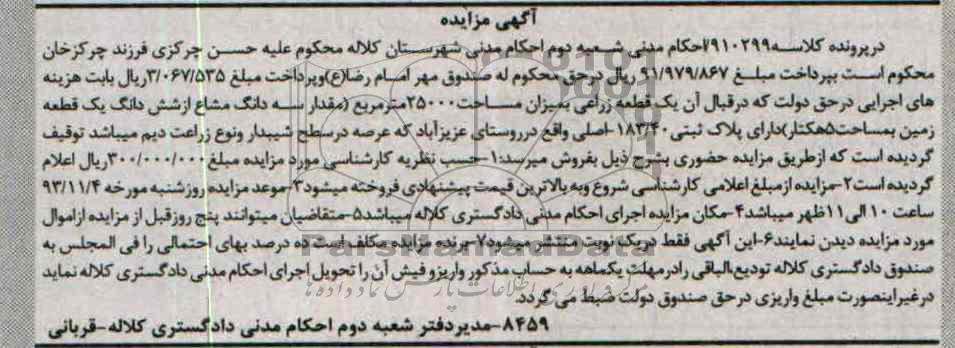 آگهی مزایده
درپرونده کلاسه۷۹۱۰۲۹۹احکام مدنی شعبه دوم احکام مدنی شهرستان کلاله محکوم علیه حسن چرکزی فرزند چرکزخان
محکوم است بپرداخت مبلغ ۹۱/۹۷۹/۸۶۷ ریال درحق محکوم له صندوق مهر امام رضا(ع)وپرداخت مبلغ ۳/۰۶۷/۵۳۵ریال بابت هزینه
های اجرایی درحق دولت که درقبال آن یک قطعه زراعی بمیزان مساحت۲۵۰۰۰مترمربع (مقدار سه دانگ مشاع ازشش دانگ یک قطعه
زمین بمساحت۵هکتار)دارای پلاک ثبتی۱۸۳/۴۰-اصلی واقع درروستای عزیزآباد که عرصه درسطح شیبدار ونوع زراعت دیم میباشد توقیف
گردیده است که ازطریق مزایده حضوری بشرح ذیل بفروش میرسد:۱-حسب نظریه کارشناسی مورد مزایده مبلغ۳۰۰/۰۰۰/۰۰۰ریال اعلام
گردیده است۲-مزایده ازمبلغ اعلامی کارشناسی شروع وبه بالاترین قیمت پیشنهادی فروخته میشود۳-موعد مزایده روزشنبه مورخه ۹۳/۱۱/۴
ساعت ۱۰ الی۱۱ظهر میباشد۴-مکان مزایده اجرای احکام مدنی دادگستری کلاله میباشد۵-متقاضیان میتوانند پنج روزقبل از مزایده ازاموال
مورد مزایده دیدن نمایند۶-این آگهی فقط دریک نوبت منتشر میشود۷-برنده مزایده مکلف است ده درصد بهای احتمالی را فی المجلس به
صندوق دادگستری کلاله تودیع،الباقی رادرمهلت یکماهه به حساب مذکور واریزو فیش آن را تحویل اجرای احکام مدنی دادگستری کلاله نماید
درغیراینصورت مبلغ واریزی درحق صندوق دولت ضبط می گردد.
۸۴۵۹-مدیردفتر شعبه دوم احکام مدنی دادگستری کلاله-قربانی
ParsNamadData